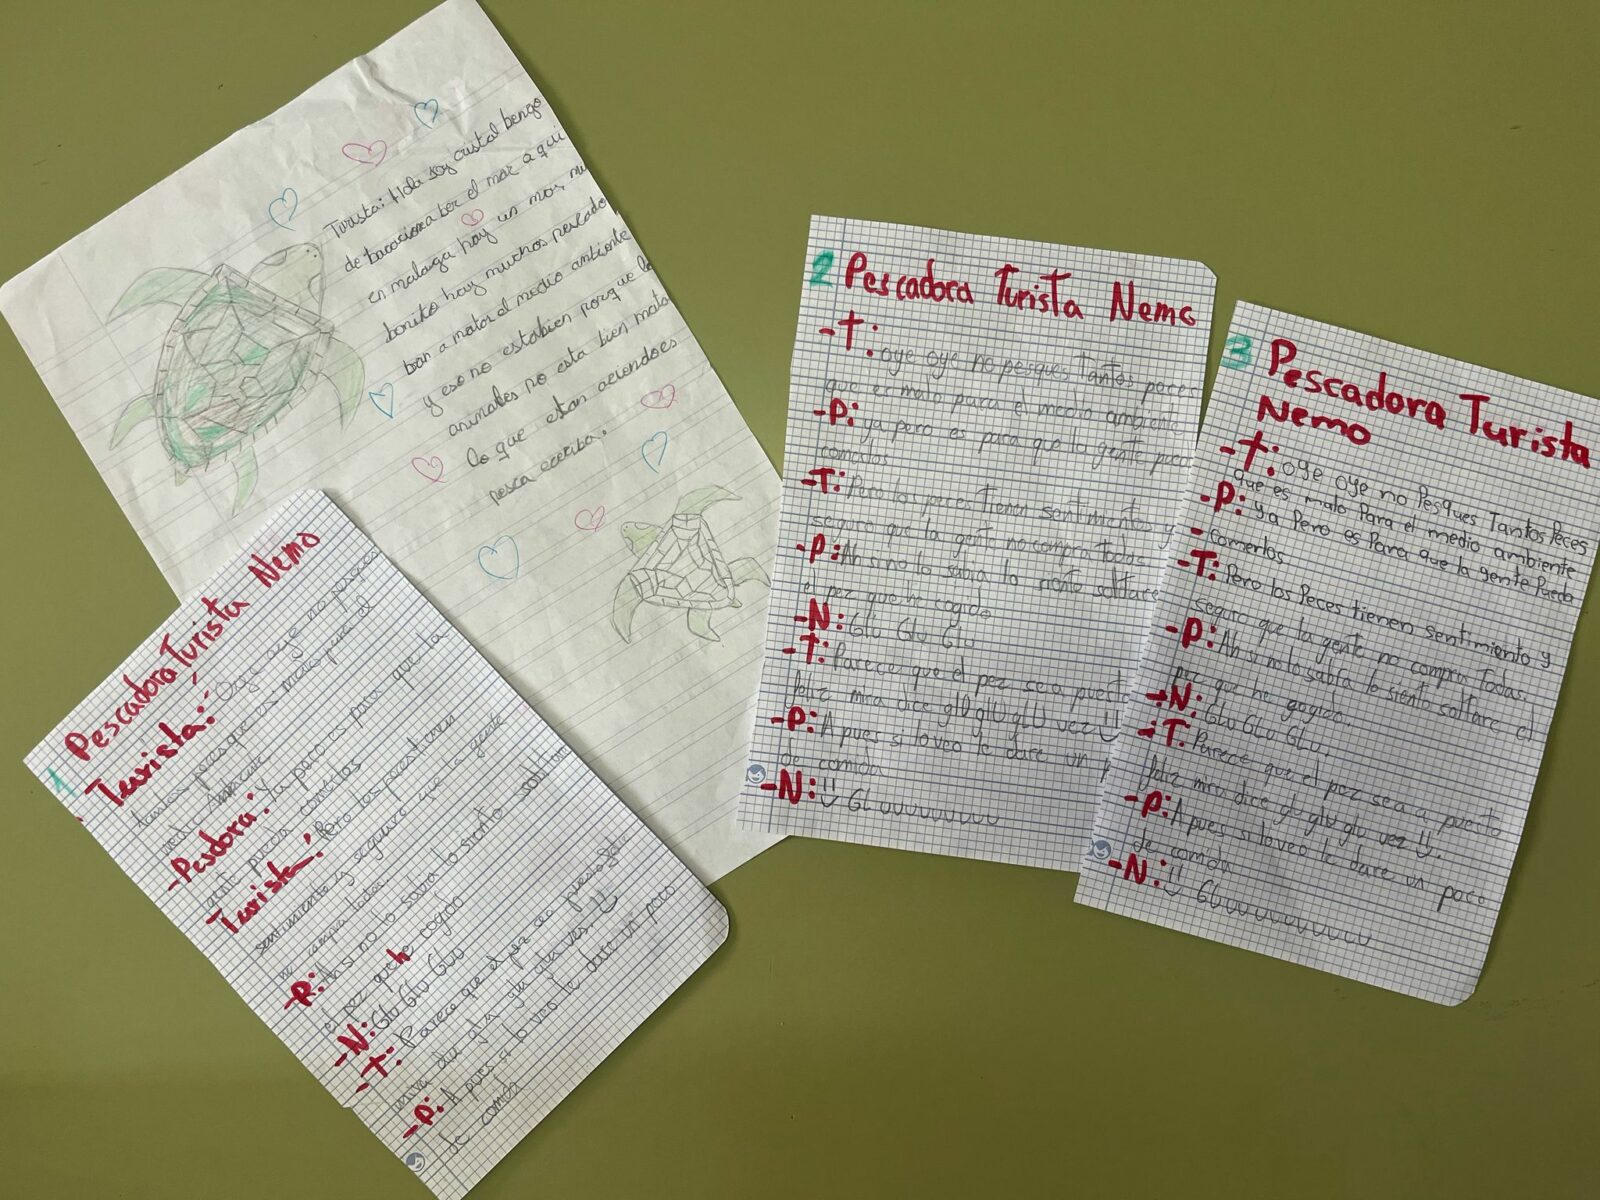 Turista: Hola soy cristal bengo
de bacaciona ber el mar a qui
en malaga hay un mar mu
bonito hay muchos pescado
ban a matar el medio ambiente
y eso no estabien porque lo
animales no esta bien mata
lo que estan aciendoes
pesca
1 Pescadora Turista Nemo
Turista: Oye oye no pesques
tantos peces que es malo para el
medio ambiente
-Pesdora: Ya pero es para que la
gente pueda comerlos
Turista: Pero los peces tienen
sentimiento y seguro que la gente
no compra todas
-P: Ah si no lo sabia lo siento soltare
el pez que he cogido
-N: Glu Glu Glu
-T: Parece que el pez sea puesto feliz
mira dice glu glu glu ves
-P: A pues si lo veo le dare un poco
de comida
2 Pescadora Turista Nemo
-T: oye oye no pesques tantos peces
que es malo para el medio ambiente
-P: ya pero es para que la gente pueda
comerlos
-T: Pero los peces tienen sentimientos y
seguro que la gente no compra todas
-P: Ah si no lo sabia lo siento soltare
el pez que he cogido
-N: Glu Glu Glu
-T: Parece que el pez sea puesto
feliz mira dice glu glu glu vez
-P: A pues si lo veo le dare un p
de comida
-N: Gluuuuuuuuu
3 Pescadora Turista
Nemo
-T: oye oye no Pesques Tantos Peces
que es malo Para el medio ambiente
-P: Ya Pero es Para que la gente Pueda
-comerlos
-T: Pero los Peces tienen sentimiento y
seguro que la gente no compra todas.
-P: Ah si no lo sabía lo siento soltare el
pez que he gogido.
-N: Glu Glu Glu.
-T: Parece que el pez sea a puesto
feliz mira dice glu glu glu vez
-P: A pues si lo veo le dare un poco
de comida
-N: Gluuuuuuuuu